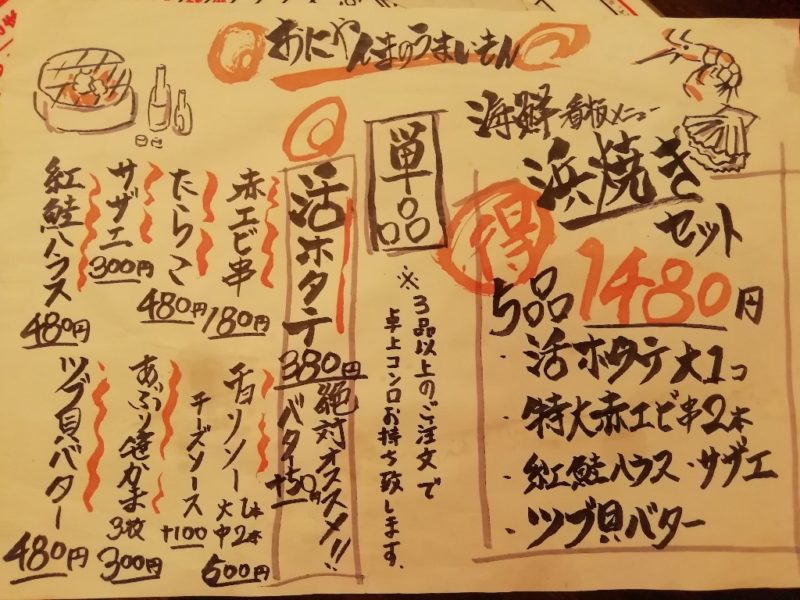 おにやんまのうまいもん
海鮮看板メニュー
浜焼き
セット
得
5品 1480円
・活ホタテ大1コ
・特大赤エビ串2本
・紅鮭ハラス・サザエ
・ツブ貝バター
単品
※3品以上のご注文で
卓上コンロお持ち致します。
活ホタテ
380円
絶対オススメ!!
バター+50円
赤エビ串
180円
たらこ
480円
サザエ
300円
紅鮭ハラス
480円
チョリソー
大1本
中2本
500円
チーズソース
+100
あぶり笹かま
3枚
300円
ツブ貝バター
480円